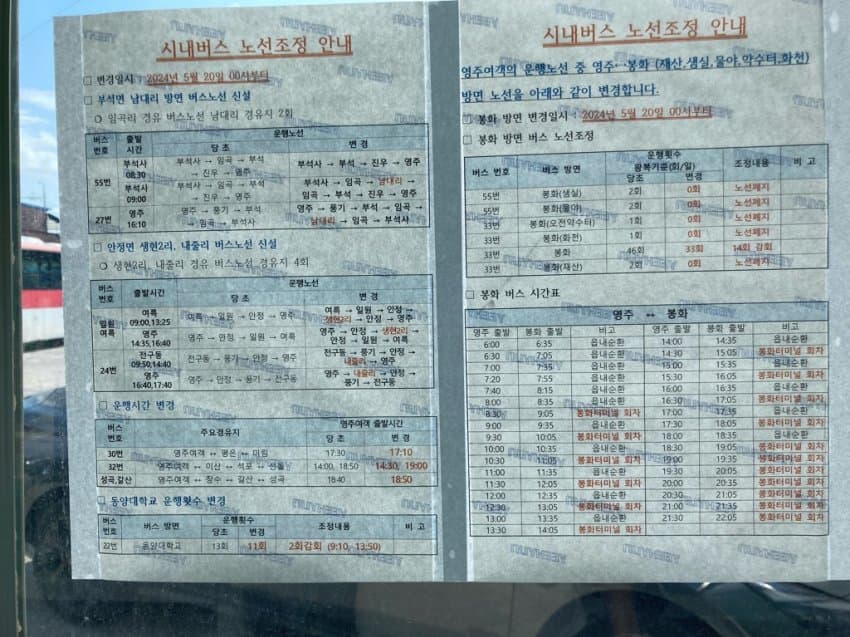 시내버스 노선조정 안내
□ 변경일시 : 2024년 5월 20일 00시부터
□ 부석면 남대리 방면 버스노선 신설
❍ 임곡리 경유 버스노선 남대리 경유지 2회
버스 번호 출발 시간 운행노선
당초 변경
55번 부석사 08:30 부석사 → 임곡 → 부석 → 진우 → 영주 부석사 → 부석 → 진우 → 영주
부석사 09:00 부석사 → 임곡 → 부석 → 진우 → 영주 부석사 → 임곡 → 남대리 → 임곡 → 부석 → 진우 → 영주
27번 영주 16:10 영주 → 풍기 → 부석 → 임곡 → 부석사 영주 → 풍기 → 부석 → 임곡 → 남대리 → 임곡 → 부석사
□ 안정면 생현2리, 내줄리 버스노선 신설
❍ 생현2리, 내줄리 경유 버스노선 경유지 4회
버스 번호 출발시간 운행노선
당초 변경
일원 여륵 여륵 09:00,13:25 여륵 → 일원 → 안정 → 영주 여륵 → 일원 → 안정 → 생현2리 → 안정 → 영주
영주 14:35,16:40 영주 → 안정 → 일원 → 여륵 영주 → 안정 → 생현2리 → 안정 → 일원 → 여륵
24번 전구동 09:50,14:40 전구동 → 풍기 → 안정 → 영주 전구동 → 풍기 → 안정 → 내줄리 → 영주
영주 16:40,17:40 영주 → 안정 → 풍기 → 전구동 영주 → 내줄리 → 안정 → 풍기 → 전구동
□ 운행시간 변경
버스 번호 주요경유지 영주여객 출발시간
당초 변경
30번 영주여객 ↔ 평은 ↔ 미림 17:30 17:10
32번 영주여객 ↔ 이산 ↔ 석포 ↔ 신돌 14:00, 18:50 14:30, 19:00
성곡,갈산 영주여객 ↔ 장수 ↔ 갈산 ↔ 성곡 18:40 18:50
□ 동양대학교 운행횟수 변경
버스 번호 버스 방면 운행횟수 조정내용 비고
당초 변경
22번 동양대학교 13회 11회 2회감회 (9:10, 13:50)
시내버스 노선조정 안내
영주여객의 운행노선 중 영주↔봉화 (재산,생실,물야,약수터,화천)
방면 노선을 아래와 같이 변경합니다.
□ 봉화 방면 변경일시 : 2024년 5월 20일 00시부터
□ 봉화 방면 버스 노선조정
버스 번호 버스 방면 운행횟수 왕복기준(회/일) 조정내용 비고
당초 변경
55번 봉화(생실) 2회 0회 노선폐지
55번 봉화(물야) 2회 0회 노선폐지
33번 봉화(오전약수터) 1회 0회 노선폐지
33번 봉화(화천) 1회 0회 노선폐지
33번 봉화 46회 33회 14회 감회
33번 봉화(재산) 2회 0회 노선폐지
□ 봉화 버스 시간표
영주 ↔ 봉화
영주 출발 봉화 출발 비고 영주 출발 봉화 출발 비고
6:00 6:35 읍내순환 14:00 14:35 읍내순환
6:30 7:05 읍내순환 14:30 15:05 봉화터미널 회차
7:00 7:35 읍내순환 15:00 15:35 읍내순환
7:20 7:55 읍내순환 15:30 16:05 봉화터미널 회차
7:40 8:15 읍내순환 16:00 16:35 읍내순환
8:00 8:35 읍내순환 16:30 17:05 봉화터미널 회차
8:30 9:05 봉화터미널 회차 17:00 17:35 읍내순환
9:00 9:35 읍내순환 17:30 18:05 봉화터미널 회차
9:30 10:05 봉화터미널 회차 18:00 18:35 읍내순환
10:00 10:35 읍내순환 18:30 19:05 봉화터미널 회차
10:30 11:05 봉화터미널 회차 19:00 19:35 봉화터미널 회차
11:00 11:35 읍내순환 19:30 20:05 봉화터미널 회차
11:30 12:05 봉화터미널 회차 20:00 20:35 봉화터미널 회차
12:00 12:35 읍내순환 20:30 21:05 봉화터미널 회차
12:30 13:05 봉화터미널 회차 21:00 21:35 봉화터미널 회차
13:00 13:35 읍내순환 21:30 22:05 봉화터미널 회차
13:30 14:05 봉화터미널 회차